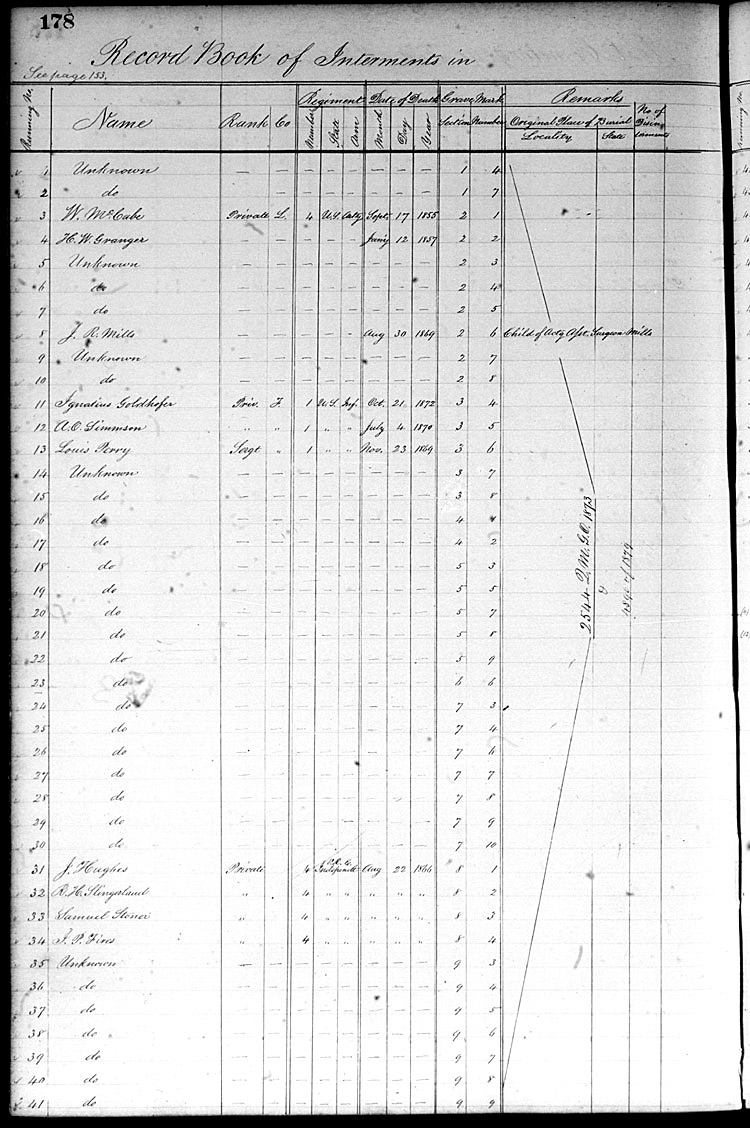 178
Record Book of Interments in
See page 153.
Running No. Name Rank Co Regiment Date of Death Grave Mark Remarks
Number State Arm Month Day Year Section Number Original Place of Burial No of
Locality State
1 Unknown — — — — — — — — 1 4
2 do — — — — — — — 1 7
3 W. McCabe Private L. 4 U.S. Arty Sept. 17 1855 2 1
4 H. W. Granger — — — — — 12 1857 2 2
5 Unknown — — — — — — — — 2 3
6 do — — — — — — — — 2 4
7 do — — — — — — — — 2 5
8 J. R. Mills — — — Aug 30 1869 2 6 Child of Actg Asst. Surgeon Mills
9 Unknown — — — — — — — — 2 7
10 do — — — — — — — — 2 8
11 Ignatius Goldhofer Priv. F. 1 U.S. Inf. Oct. 21 1872 3 4
12 A. O. Simmson " " 1 " " July 4 1870 3 5
13 Louis Perry Sergt " 1 " " Nov. 23 1869 3 6
14 Unknown — — — — — — — — 3 7
15 do — — — — — — — — 3 8
16 do — — — — — — — — 4
17 do — — — — — — — — 4 2
18 do — — — — — — — — 5 3
19 do — — — — — — — — 5 5
20 do — — — — — — — — 5 7
21 do — — — — — — — — 5 8
22 do — — — — — — — — 5 9
23 do — — — — — — — — 6 6
24 do — — — — — — — — 7 3
25 do — — — — — — — — 7 4
26 do — — — — — — — — 7 6
27 do — — — — — — — — 7 7
28 do — — — — — — — — 7 8
29 do — — — — — — — — 7 9
30 do — — — — — — — — 7 10
2544 Q.M.G.O. 1873
of 1879
31 J. Hughes Private 4 Aug 22 1866 8 1
32 R. H. Slingerland " 4 " " " " " 8 2
33 Samuel Stoner " 4 " " " " " 8 3
34 J. P. Fires " 4 " " " " " 8 4
35 Unknown — — — — — — — — 9 3
36 do — — — — — — — — 9 4
37 do — — — — — — — — 9 5
38 do — — — — — — — — 9 6
39 do — — — — — — — — 9 7
40 do — — — — — — — — 9 8
41 do — — — — — — — — 9 9